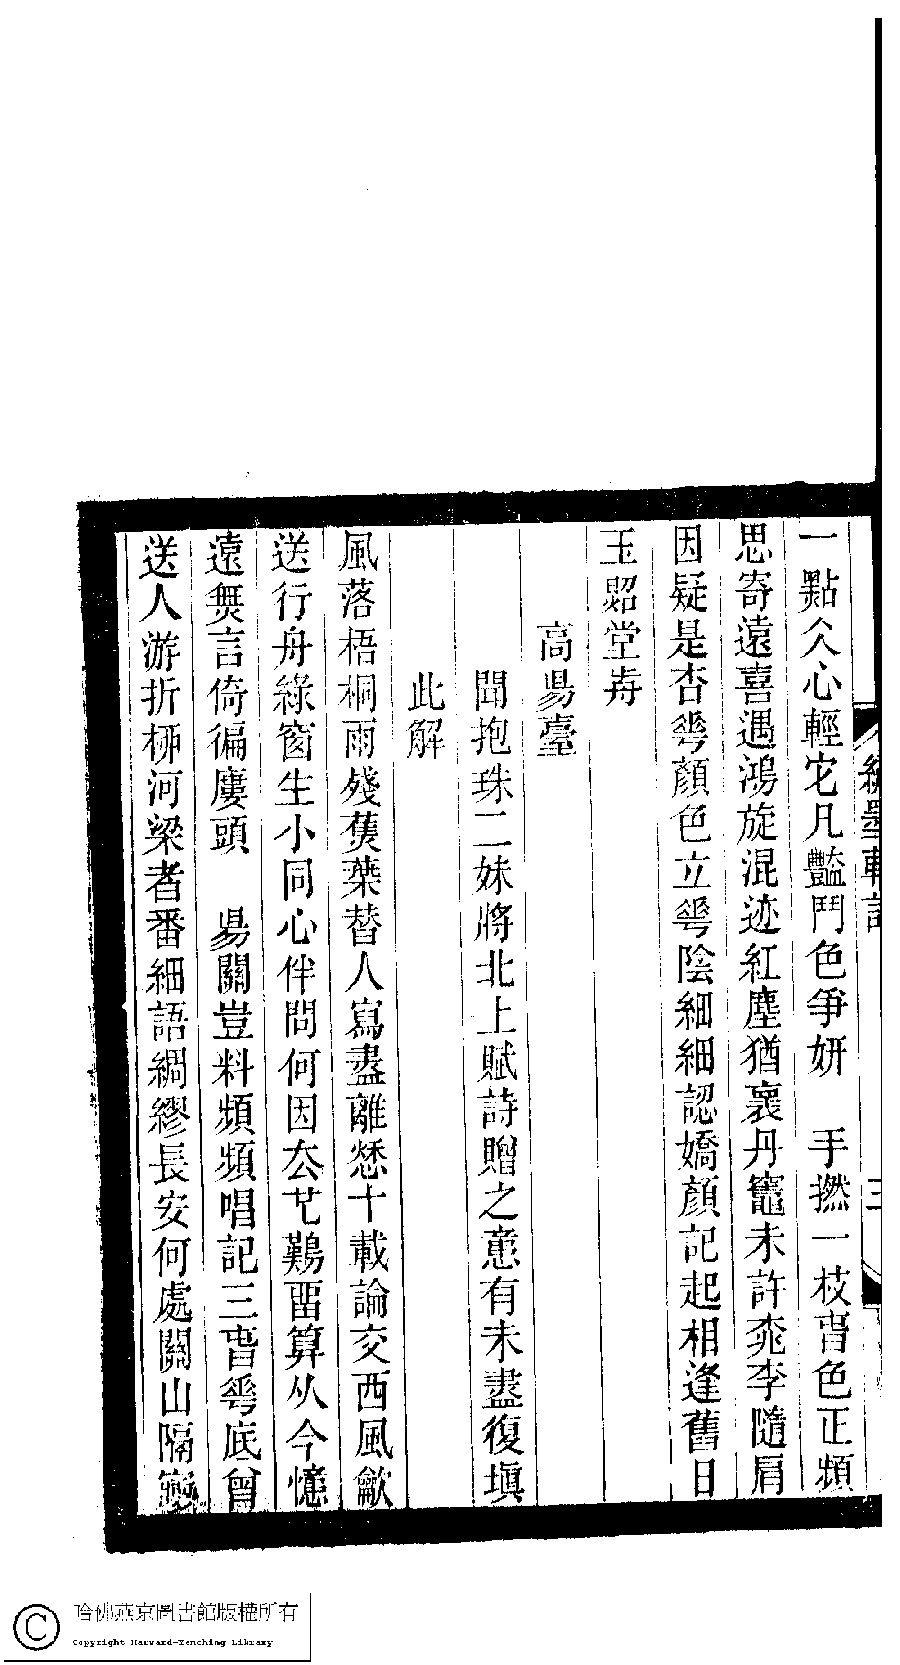 一點久心輕它凡豔鬥色爭妍　手撚一枝旾色正頻
思寄遠喜遇鴻旋混迹紅塵猶裹丹竈未許桃李隨肩
因疑是杏蕐顏色立蕐陰細細認嬌顏記起相逢舊日
玉照堂歬
高昜臺
聞抱珠二妹將北上賦詩贈之意有未盡復塡
此解
風落梧桐雨殘蕉葉替人寫盡離愁十載論交西風歗
送行舟綠窗生小同心伴問何因厺也難畱算从今憶
遠無言倚徧廔頭　昜關豈料頻頻唱記三旾蕐底曾
送人游折桺河梁者番細語綢繆長安何處關山隔
墨軒詞
三
哈佛燕京圖書館版權所有
Copyright Harvard-Yenching Library